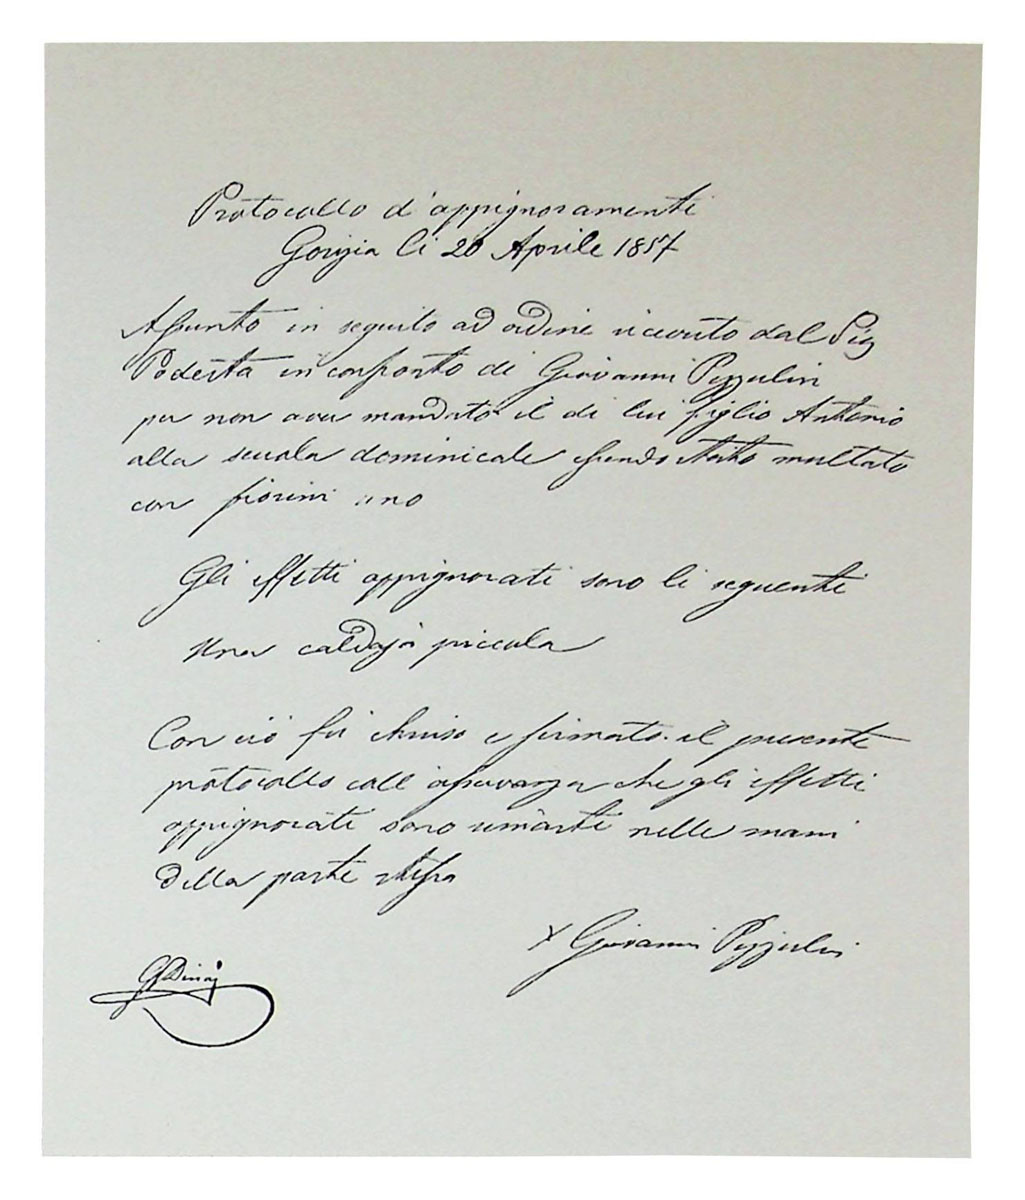 Protocollo d'appignoramenti
Gorizia li 20 Aprile 1857
Assunto in seguito ad ordine ricevuto dal Sig
Podestà in confronto di Giovanni Pizzulin
per non aver mandato il di lui figlio Antonio
alla scuola dominicale essendo stato multato
con fiorini uno
Gli effetti appignorati sono li seguenti
Una caldaja piccola
Con ciò fu chiuso e firmato il presente
protocollo coll' osservanza che gli effetti
appignorati sono rimasti nelle mani
della parte stessa
X Giovanni Pizzulin